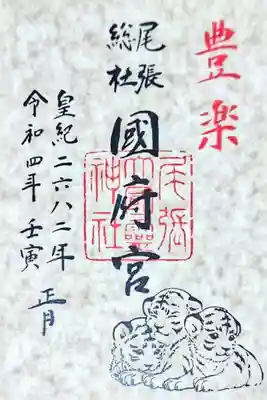 豊楽
尾張
総社
國府宮
尾張大國霊神社
皇紀二六八二年
令和四年 壬寅 正月